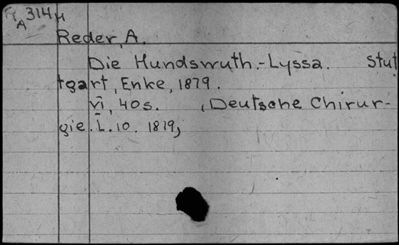 A 314 H
Reder, A.
Die Hundswuth.-Lyssa. Stut
tgart, Enke, 1879.
VI, 40 s. , Deutsche Chirur-
gie. L. 10. 1879,